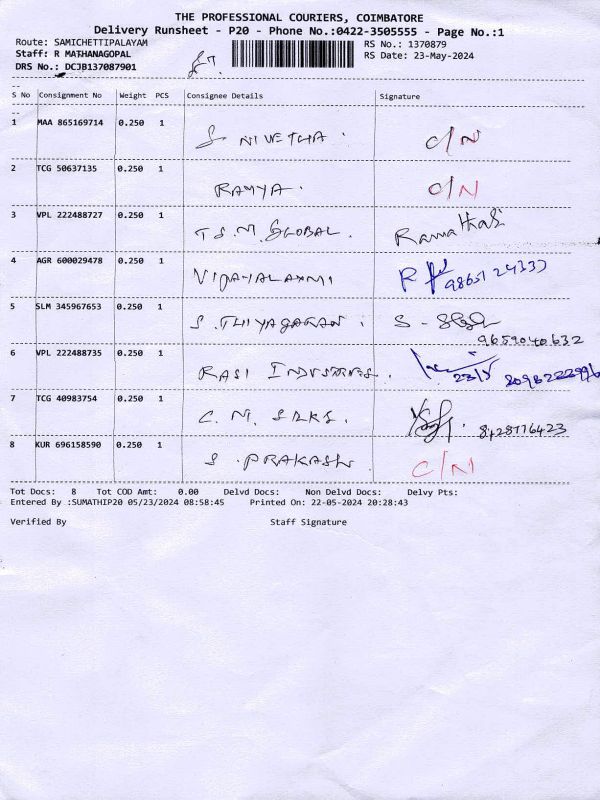 THE PROFESSIONAL COURIERS, COIMBATORE
Delivery Runsheet - P20 - Phone No.:0422-3505555 - Page No.:1
Route: SAMICHETTIPALAYAM
RS No.: 1370879
Staff: R MATHANAGOPAL
RS Date: 23-May-2024
DRS No.: DCJB137087901
S No Consignment No Weight PCS Consignee Details Signature
1 MAA 865169714 0.250 1 S. NIVETHA. C/N
2 TCG 50637135 0.250 1 RAMYA. C/N
3 VPL 222488727 0.250 1 T.S.M. GLOBAL.
4 AGR 600029478 0.250 1 VIJAYALAXMI R
5 SLM 345967653 0.250 1 S. THIYAGARAN. 9659040632
6 VPL 222488735 0.250 1 RASI INDUSTRIES. 23/5
7 TCG 40983754 0.250 1 C. M. SILKS.
8 KUR 696158590 0.250 1 S. PRAKASH. C/N
Tot Docs: 8 Tot COD Amt: 0.00 Delvd Docs: Non Delvd Docs: Delvy Pts:
Entered By :SUMATHIP20 05/23/2024 08:58:45 Printed On: 22-05-2024 20:28:43
Verified By Staff Signature